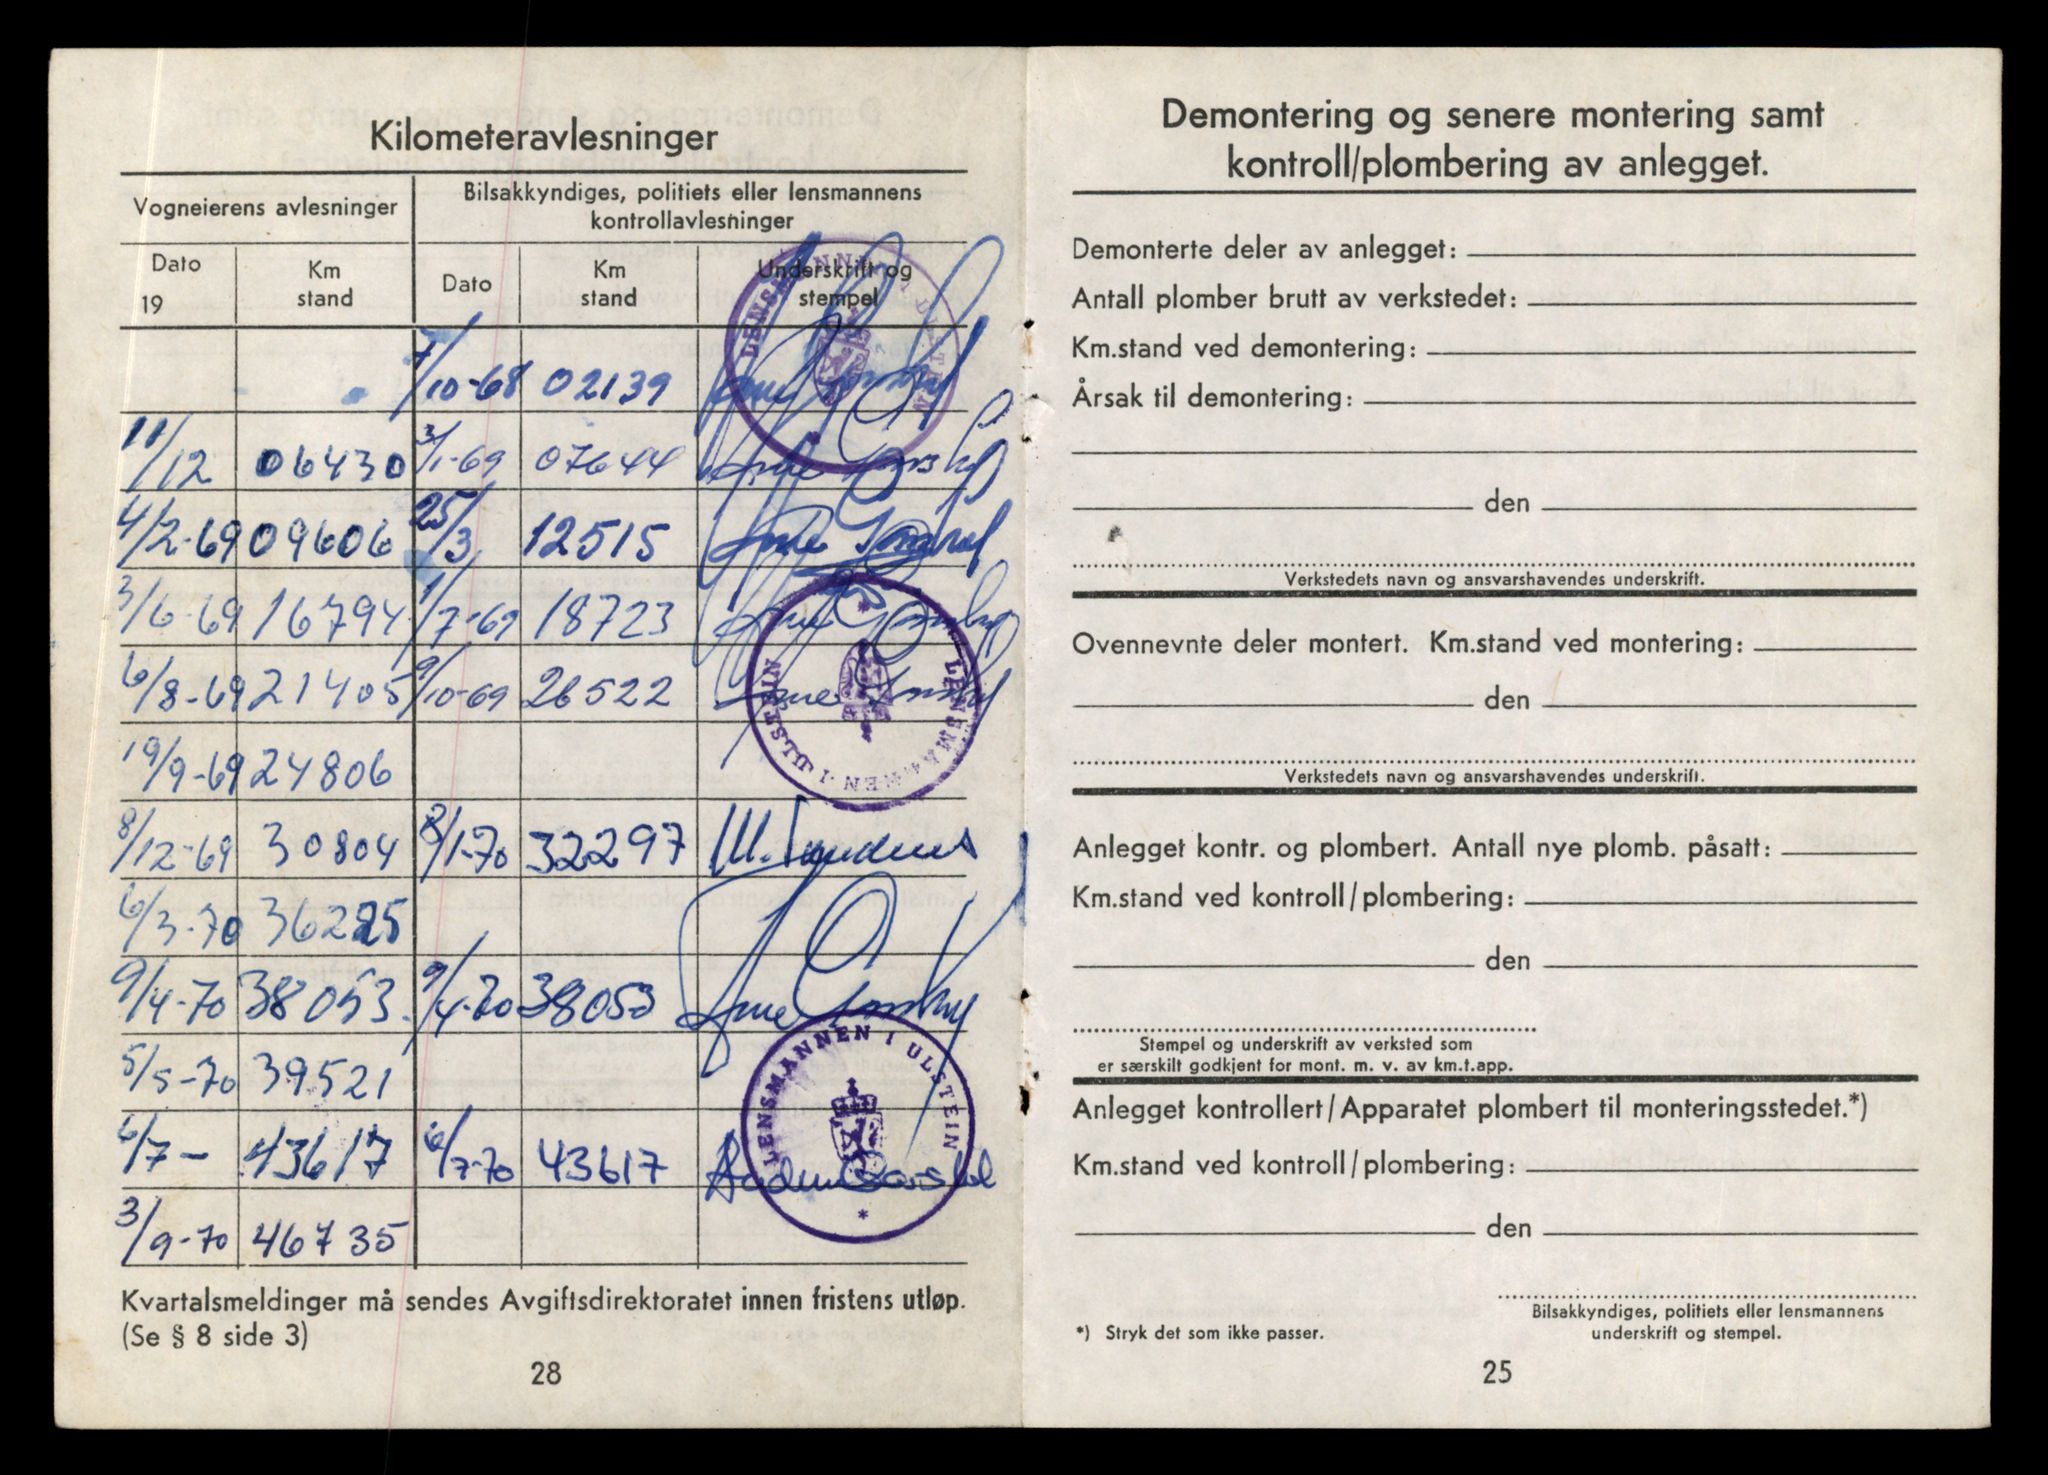 Kilometeravlesninger
Vogneierens avlesninger
Bilsakkyndiges, politiets eller lensmannens
kontrollavlesninger
Dato
19
Km
stand
Dato
Km
stand
Underskrift og
stempel
7/10-68 02139
11/12 06430 3/1-69 07644
4/2-69 09606 25/3 12515
3/6-69 16794 1/7-69 18723
6/8-69 21405 9/10-69 26522
19/9-69 24806
8/12-69 30804 2/1-70 32297
6/3-70 36225
9/4-70 38053 9/4-70 38053
5/5-70 39521
6/7- 43617 6/7-70 43617
3/9-70 46735
LENSMANNEN I ULSTEIN
LENSMANNEN I ULSTEIN
LENSMANNEN I ULSTEIN
Kvartalsmeldinger må sendes Avgiftsdirektoratet innen fristens utløp.
(Se § 8 side 3)
28
Demontering og senere montering samt
kontroll/plombering av anlegget.
Demonterte deler av anlegget:
Antall plomber brutt av verkstedet:
Km.stand ved demontering:
Årsak til demontering:
den
Verkstedets navn og ansvarshavendes underskrift.
Ovennevnte deler montert. Km.stand ved montering:
den
Verkstedets navn og ansvarshavendes underskrift.
Anlegget kontr. og plombert. Antall nye plomb. påsatt:
Km.stand ved kontroll/plombering:
den
Stempel og underskrift av verksted som
er særskilt godkjent for mont. m. v. av km.t.app.
Anlegget kontrollert/Apparatet plombert til monteringsstedet.*)
Km.stand ved kontroll/plombering:
den
Bilsakkyndiges, politiets eller lensmannens
underskrift og stempel.
*) Stryk det som ikke passer.
25